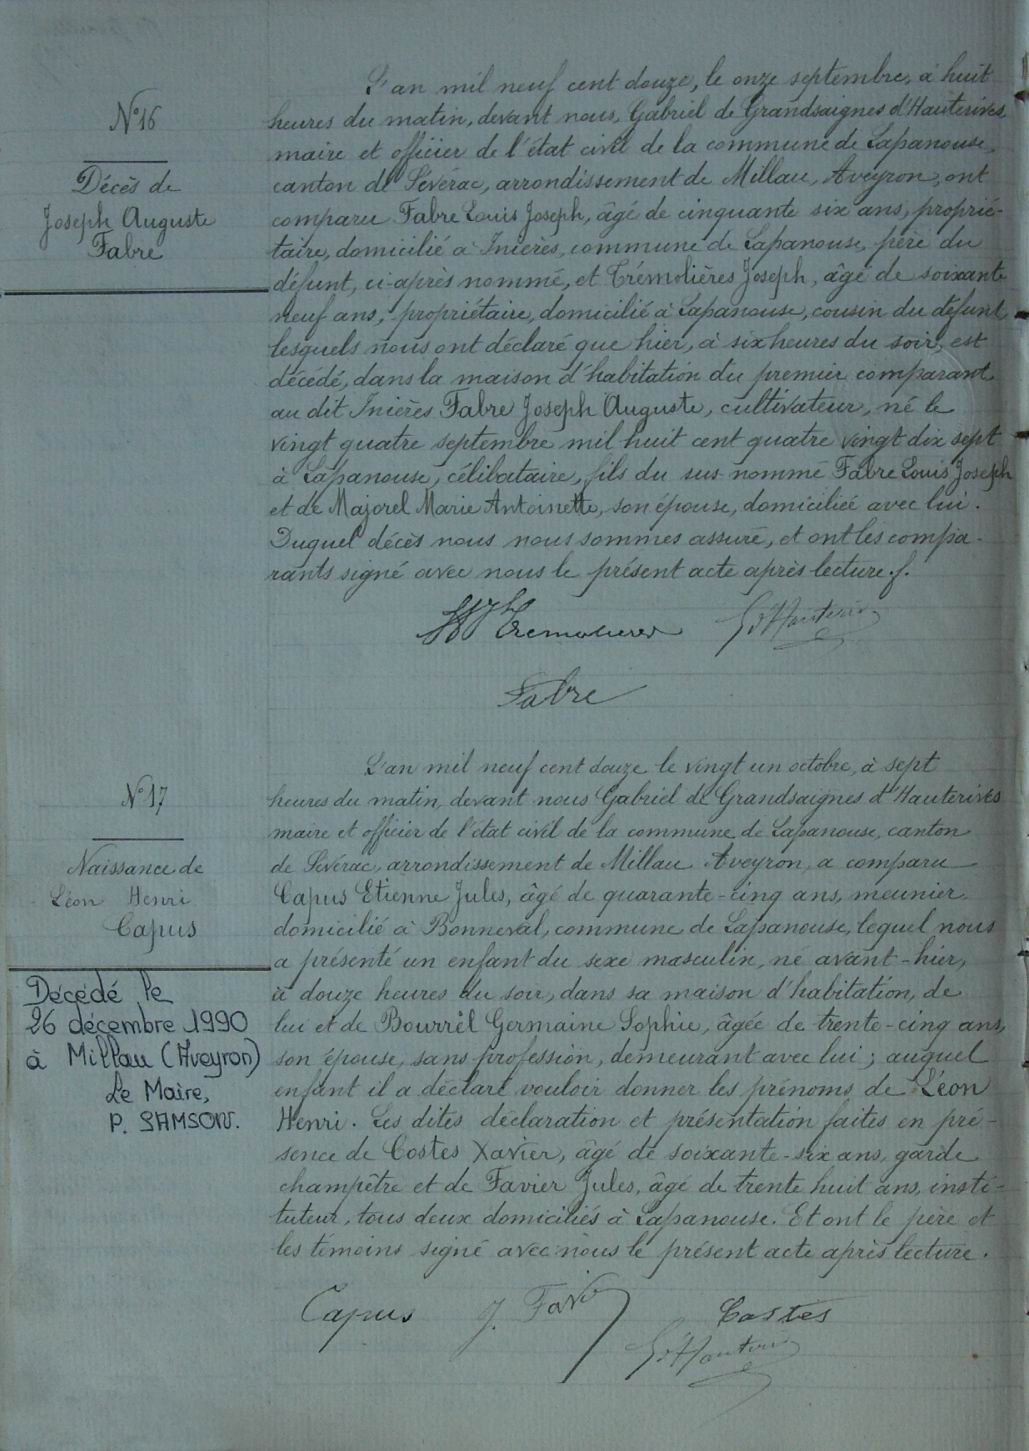 N°16
Décès de
Joseph Auguste
Fabre
L'an mil neuf cent douze, le onze septembre, à huit
heures du matin, devant nous, Gabriel de Grandsaignes d'Hauterives,
maire et officier de l'état civil de la commune de Lapanouse,
canton de Sévérac, arrondissement de Millau, Aveyron, ont
comparu Fabre Louis Joseph, âgé de cinquante six ans, proprié-
taire, domicilié à Inières, commune de Lapanouse, père du
défunt, ci-après nommé, et Trémolières Joseph, âgé de soixante
neuf ans, propriétaire, domicilié à Lapanouse, cousin du défunt,
lesquels nous ont déclaré que hier, à six heures du soir, est
décédé, dans la maison d'habitation du premier comparant,
au dit Inières Fabre Joseph Auguste, cultivateur, né le
vingt quatre septembre mil huit cent quatre vingt dix sept
à Lapanouse, célibataire, fils du sus-nommé Fabre Louis Joseph
et de Majorel Marie Antoinette, son épouse, domiciliée avec lui.
Duquel décès nous nous sommes assuré, et ont les compa-
rants signé avec nous le présent acte après lecture.
Tremolieres G. d'Hauterives
Fabre
N°17
Naissance de
Léon Henri
Capus
Décédé le
26 décembre 1990
à Millau (Aveyron)
Le Maire,
P. SAMSON.
L'an mil neuf cent douze le vingt un octobre, à sept
heures du matin, devant nous Gabriel de Grandsaignes d'Hauterives
maire et officier de l'état civil de la commune de Lapanouse, canton
de Sévérac, arrondissement de Millau Aveyron, a comparu
Capus Etienne Jules, âgé de quarante-cinq ans, meunier
domicilié à Bonneval, commune de Lapanouse, lequel nous
a présenté un enfant du sexe masculin, né avant-hier,
à douze heures du soir, dans sa maison d'habitation, de
lui et de Bourrel Germaine Sophie, âgée de trente-cinq ans,
son épouse, sans profession, demeurant avec lui; auquel
enfant il a déclaré vouloir donner les prénoms de Léon
Henri. Les dites déclaration et présentation faites en pré-
sence de Costes Xavier, âgé de soixante-six ans, garde
champêtre et de Favier Jules, âgé de trente huit ans, insti-
tuteur, tous deux domiciliés à Lapanouse. Et ont le père et
les témoins signé avec nous le présent acte après lecture.
Capus J. Favier Costes
G. d'Hauterives